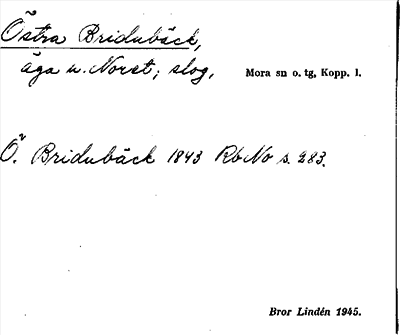 Östra Bridubäck,
äga n. Noret; slog.
Mora sn o. tg, Kopp. l.
Ö. Bridubäck 1843 RbNo s. 283.
Bror Lindén 1945.